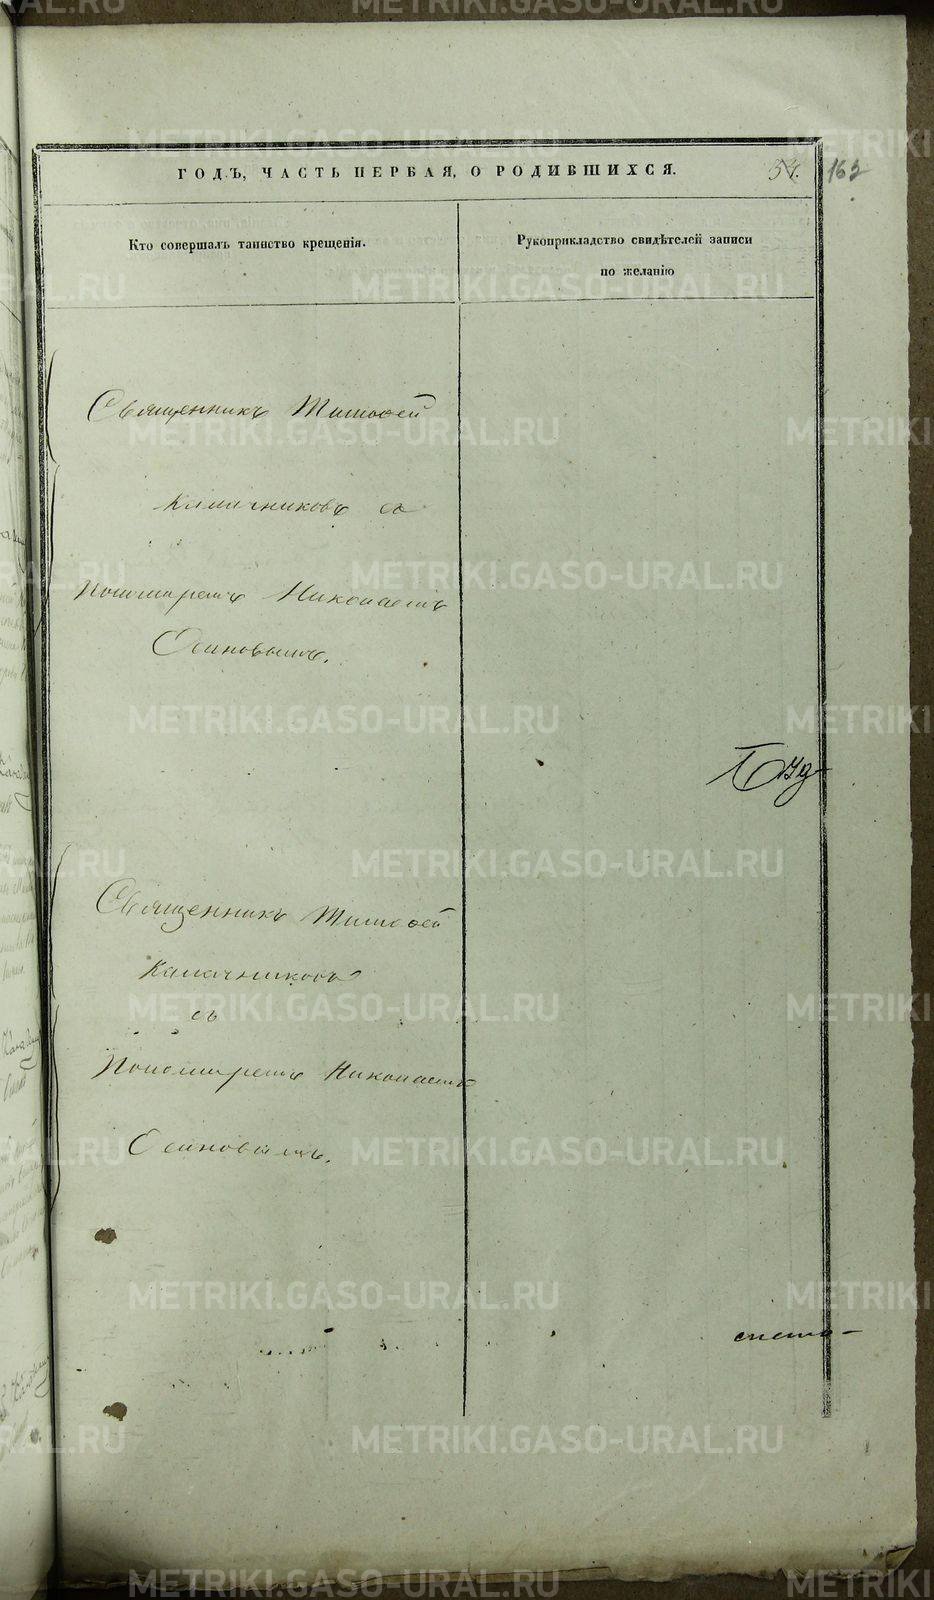 ГОДЪ, ЧАСТЬ ПЕРВАЯ, О РОДИВШИХСЯ. 54. 162
Кто совершалъ таинство крещенія.
Рукоприкладство свидѣтелей записи
по желанію
Священникъ Тимофей
Калачниковъ съ
Пономаремъ Николаемъ
Осиновымъ.
Священникъ Тимофей
Калачниковъ
съ
Пономаремъ Николаемъ
Осиновымъ.
METRIKI.GASO-URAL.RU